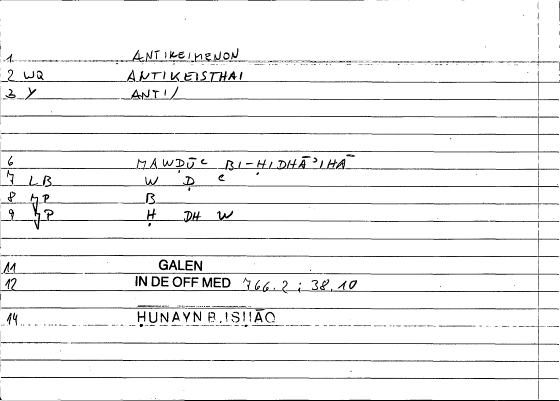 1 ANTIKEIMENON
2 WQ ANTIKEISTHAI
3 Y ANTI/
6 MAWḌŪʿ BI-ḤIDHĀʾIHĀ
7 LB W Ḍ ʿ
8 JP B
9 JP Ḥ DH W
11 GALEN
12 IN DE OFF MED 766.2 ; 38.10
14 ḤUNAYN B. ISḤĀQ